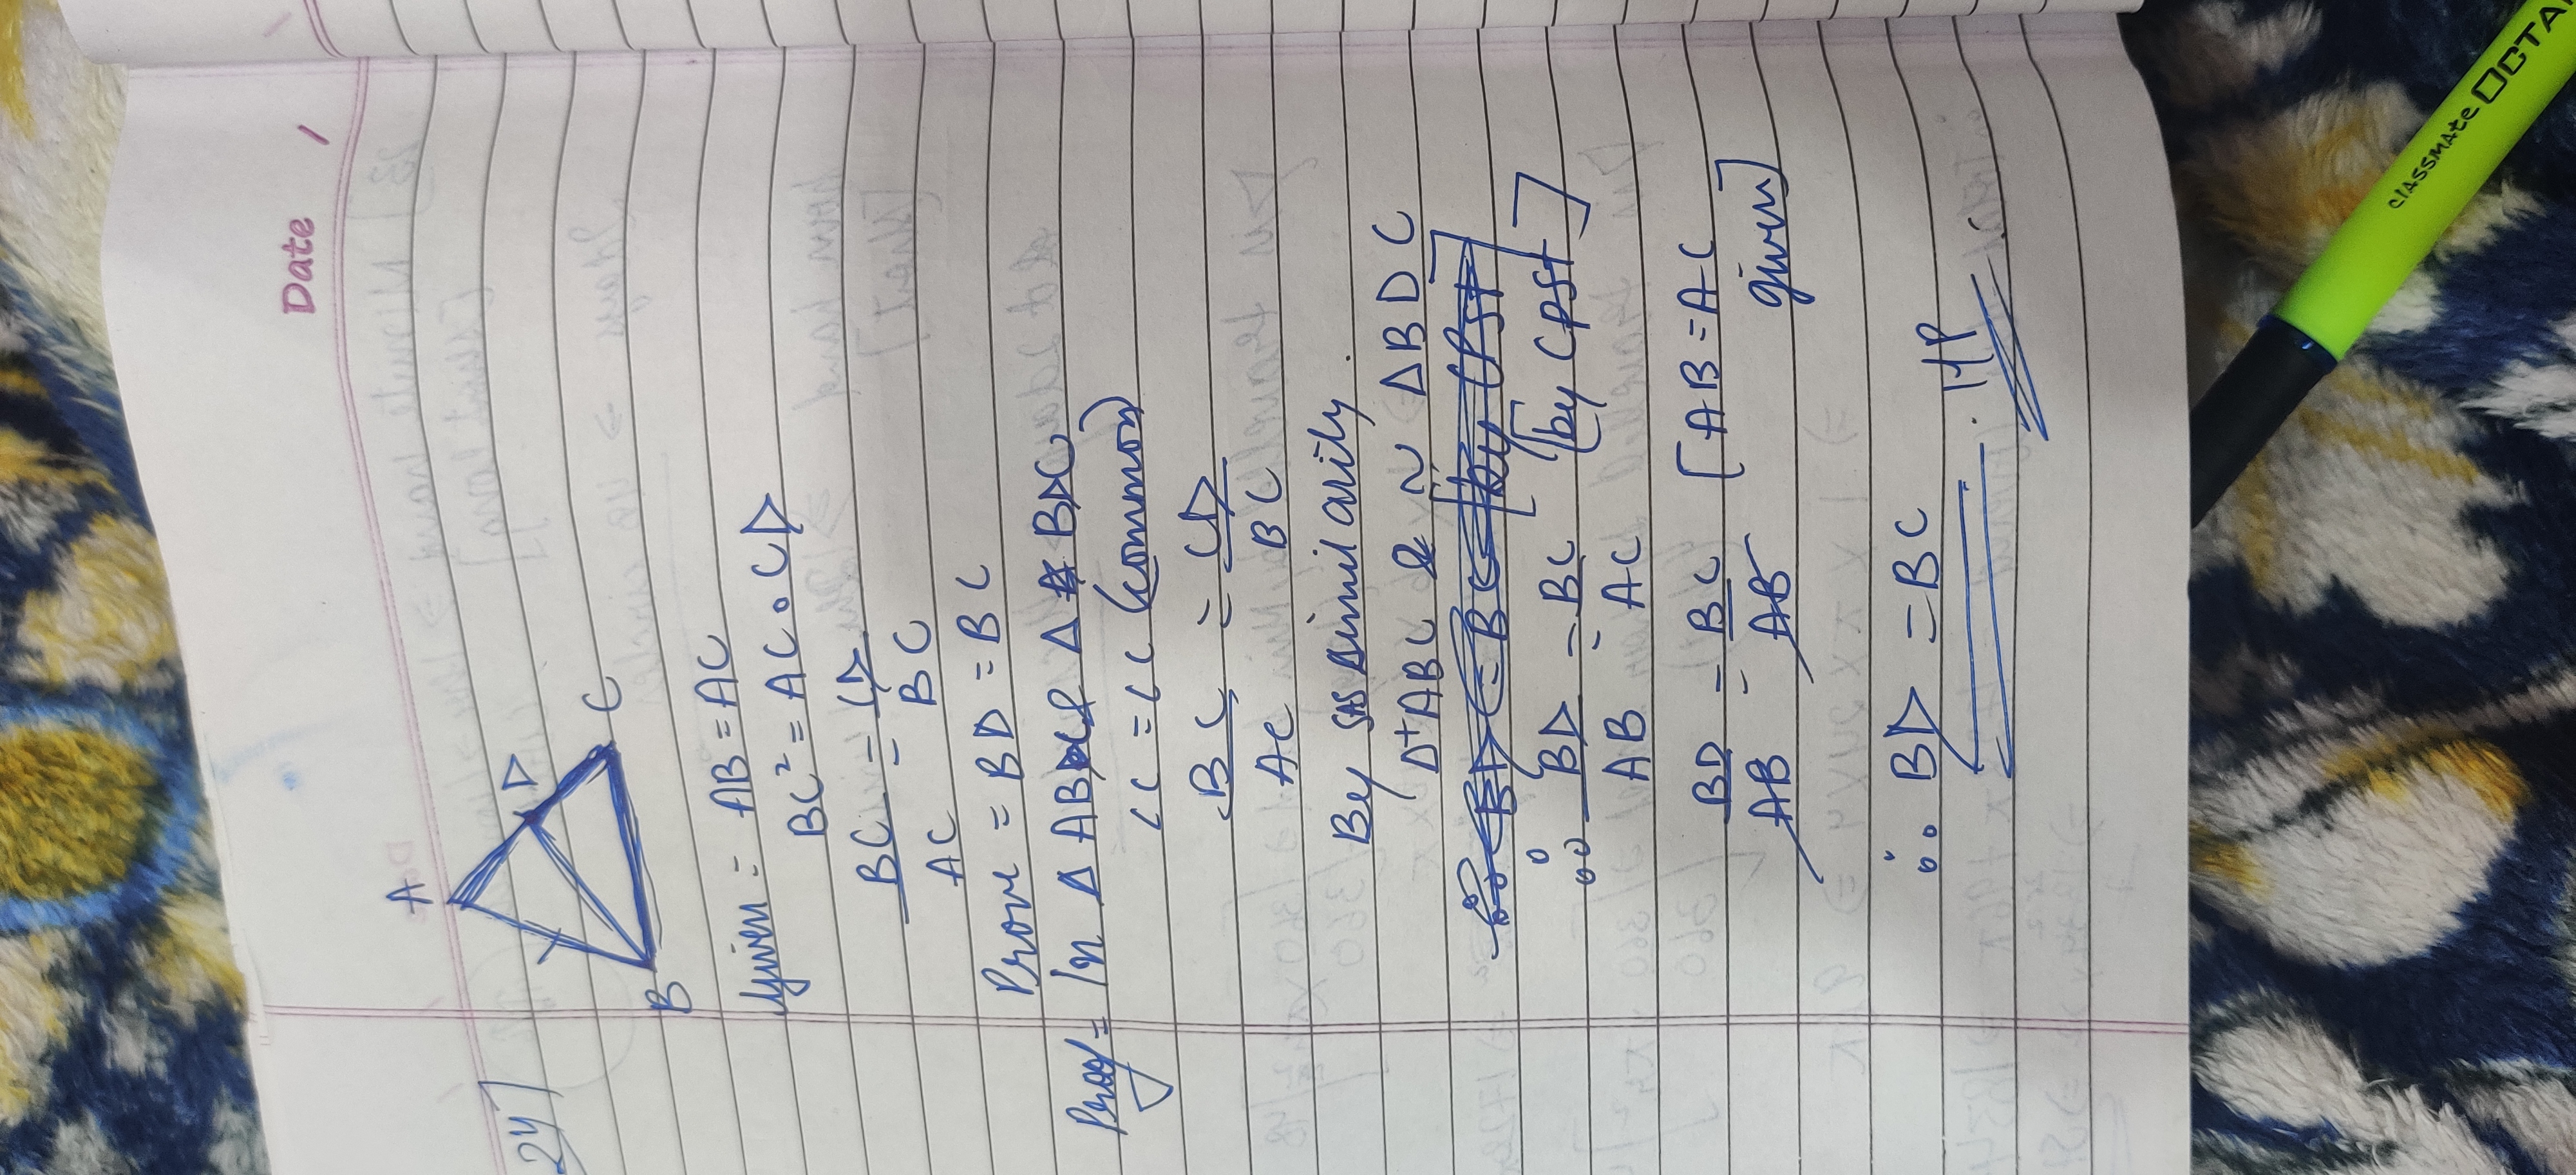 Date /
24)
A
D
B
C
Given = AB = AC
BC² = AC . CD
BC = CD
AC BC
Prove = BD = BC
Proof = In Δ ABC & Δ BDC
∠C = ∠C (common)
BC = CD
AC BC
By SAS similarity.
Δ ABC ~ Δ BDC
∴ BD = BC [by CPST]
AB AC
BD = BC [AB = AC
AB AB given]
∴ BD = BC . HP
classmate OCTA